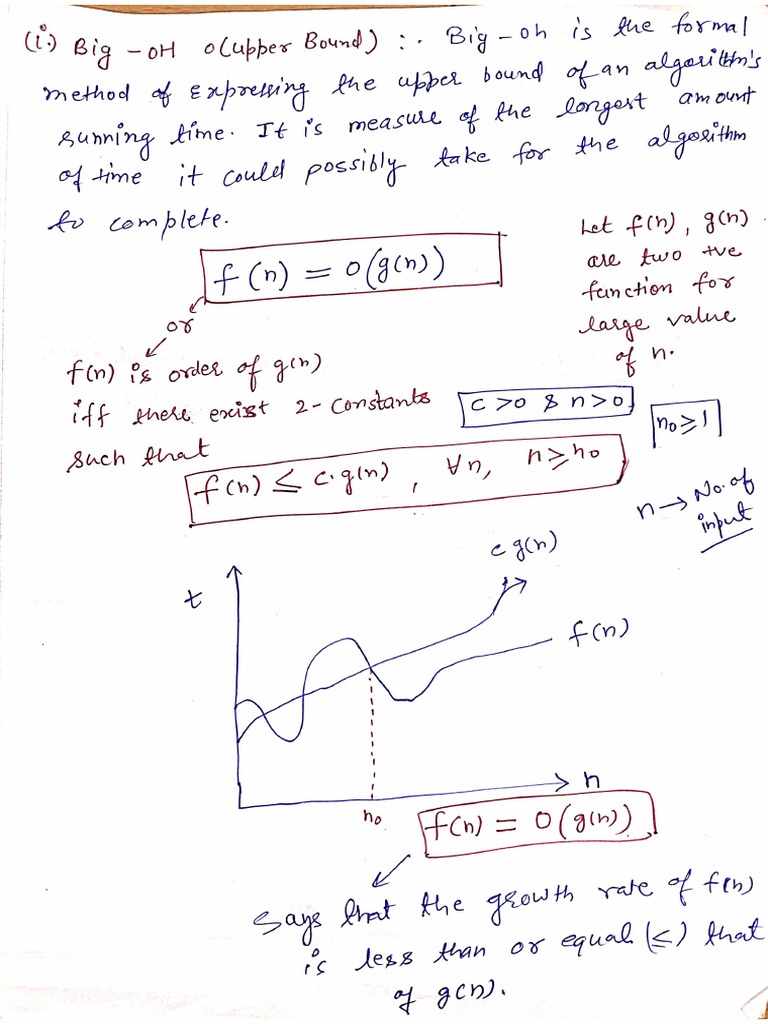 (i.) Big - OH O(upper Bound) :. Big - Oh is the formal
method of Expressing the upper bound of an algorithm's
running time. It is measure of the longest amount
of time it could possibly take for the algorithm
to complete.
f(n) = O(g(n))
Let f(n), g(n)
are two +ve
function for
large value
of n.
or
f(n) is order of g(n)
iff there exist 2-constants
such that
c >0 & n>0
n₀ ≥ 1
f(n) ≤ c.g(n) , ∀n, n ≥ n₀
n → No. of
input
c g(n)
t
f(n)
n
n₀
f(n) = O(g(n))
Says that the growth rate of f(n)
is less than or equal (≤) that
of g(n).